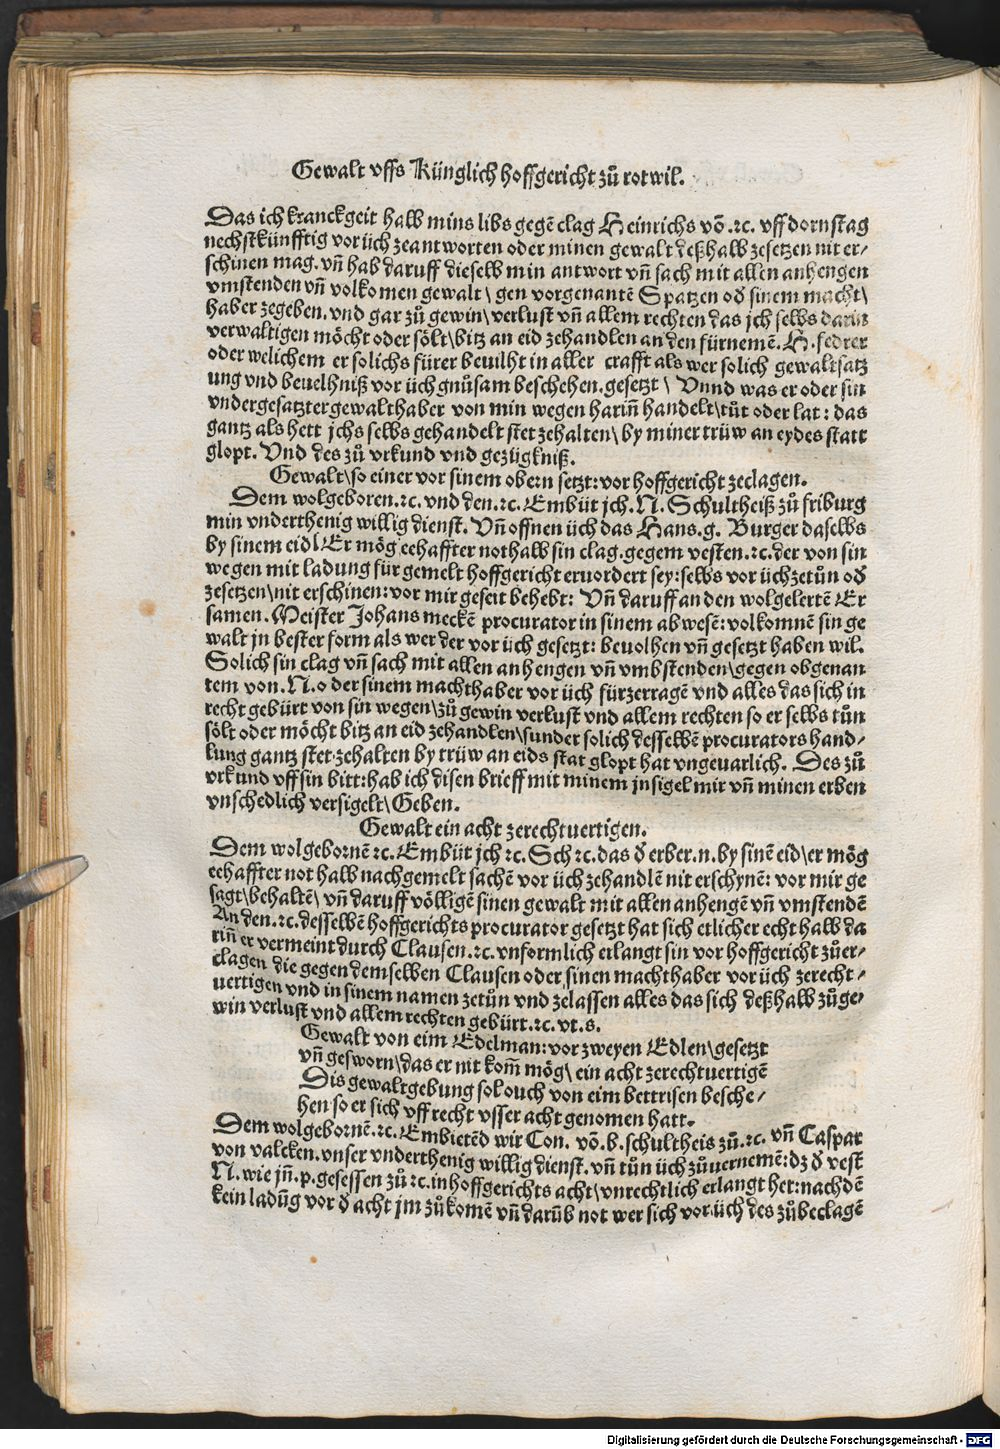 Gewalt vffs Künglich hoffgericht zů rotwil.
Das ich kranckgeit halb mins libs gegē clag Heinrichs vō .ꝛc. vff dornstag
nechstkünfftig vor üch zeantworten oder minen gewalt deßhalb zesetzen nit er⸗
schinen mag. vn̄ hab daruff dieselb min antwort vn̄ sach mit allen anhengen
vmstenden vn̄ volkomen gewalt \ gen vorgenantē Spatzen oď sinem macht\
haber zegeben. vnd gar zů gewin\ verlust vn̄ allem rechten das jch selbs darin
verwaltigen möcht oder sölt\ bitz an eid zehandlen an den fürnemē. H. fedrer
oder welichem er solichs fürer beuilht in aller crafft als wer solich gewaltsatz
ung vnd beuelhniß vor üch gnůsam beschehen. gesetzt \ Vnnd was er oder sin
vndergesatzter gewalthaber von min wegen harin̄ handelt\ tůt oder lat : das
gantz als hett jchs selbs gehandelt stet zehalten\ by miner trüw an eydes statt
glopt. Vnd des zů vrkund vnd gezügkniß.
Gewalt\ so einer vor sinem obern setzt: vor hoffgericht zeclagen.
Dem wolgeboren .ꝛc. vnd den .ꝛc. Embüt jch. N. Schultheiß zů friburg
min vnderthenig willig dienst. Vn̄ offnen üch das Hans. g. Burger daselbs
by sinem eid\ Er mög eehaffter nothalb sin clag. gegem vesten .ꝛc. der von sin
wegen mit ladung für gemelt hoffgericht eruordert sey: selbs vor üch zetůn oď
zesetzen\ nit erschinen: vor mir geseit behebt: Vn̄ daruff an den wolgelertē Er
samen. Meister Johans meckē procurator in sinem abwesē: volkomnē sin ge
walt jn bester form als wer der vor üch gesetzt: beuolhen vn̄ gesetzt haben wil.
Solich sin clag vn̄ sach mit allen anhengen vn̄ vmbstenden\ gegen obgenan
tem von. N. o der sinem machthaber vor üch fürzerragē vnd alles das sich in
recht gebürt von sin wegen\ zů gewin verlust vnd allem rechten so er selbs tůn
sölt oder möcht bitz an eid zehandlen\ sunder solich desselbē procurators hand⸗
lung gantz stet zehalten by trüw an eids stat glopt hat vngeuarlich. Des zů
vrkund vff sin bitt: hab ich disen brieff mit minem jnsigel mir vn̄ minen erben
vnschedlich versigelt\ Geben.
Gewalt ein acht zerechtuertigen.
Dem wolgebornē ꝛc. Embüt jch ꝛc. Sch ꝛc. das ď erber. n. by sinē eid\ er mög
eehaffter not halb nachgemelt sachē vor üch zehandlē nit erschynē: vor mir ge
sagt\ behaltē\ vn̄ daruff völligē sinen gewalt mit allen anhengē vn̄ vmstendē
An den .ꝛc. desselbē hoffgerichts procurator gesetzt hat sich etlicher echt halb da
rin̄ er vermeint durch Clausen .ꝛc. vnformlich erlangt sin vor hoffgericht zůer⸗
clagen die gegen demselben Clausen oder sinen machthaber vor üch zerecht⸗
uertigen vnd in sinem namen zetůn vnd zelassen alles das sich deßhalb zůge⸗
win verlust vnd allem rechten gebürt .ꝛc. vt. s.
Gewalt von eim Edelman: vor zweyen Edlen\ gesetzt
vn̄ gesworn\ das er nit kom̄ mög\ ein acht zerechtuertigē
Dis gewaltgebung sol ouch von eim bettrisen besche⸗
hen so er sich vff recht vsser acht genomen hatt.
Dem wolgebornē .ꝛc. Embietēd wir Con. vō. b. schultheis zů .ꝛc. vn̄ Caspar
von valcken. vnser vnderthenig willig dienst. vn̄ tůn üch zůuernemē: dz ď vest
N. wie jn̄. p. gesessen zů ꝛc. in hoffgerichts acht\ vnrechtlich erlangt het: nachdē
kein ladūg vor ď acht jm zůkomē vn̄ darūb not wer sich vor üch des zůbeclagē
Digitalisierung gefördert durch die Deutsche Forschungsgemeinschaft - DFG